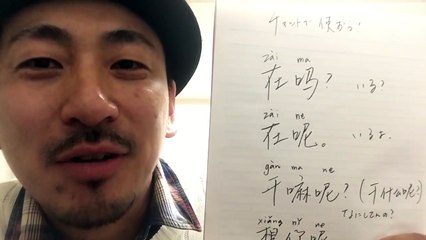 チャットで使おう
zài ma
在吗? いる?
zài ne
在呢。 いるよ。
gàn ma ne
干嘛呢?(干什么呢?)
なにしてんの?
xiǎng nǐ ne
想你呢